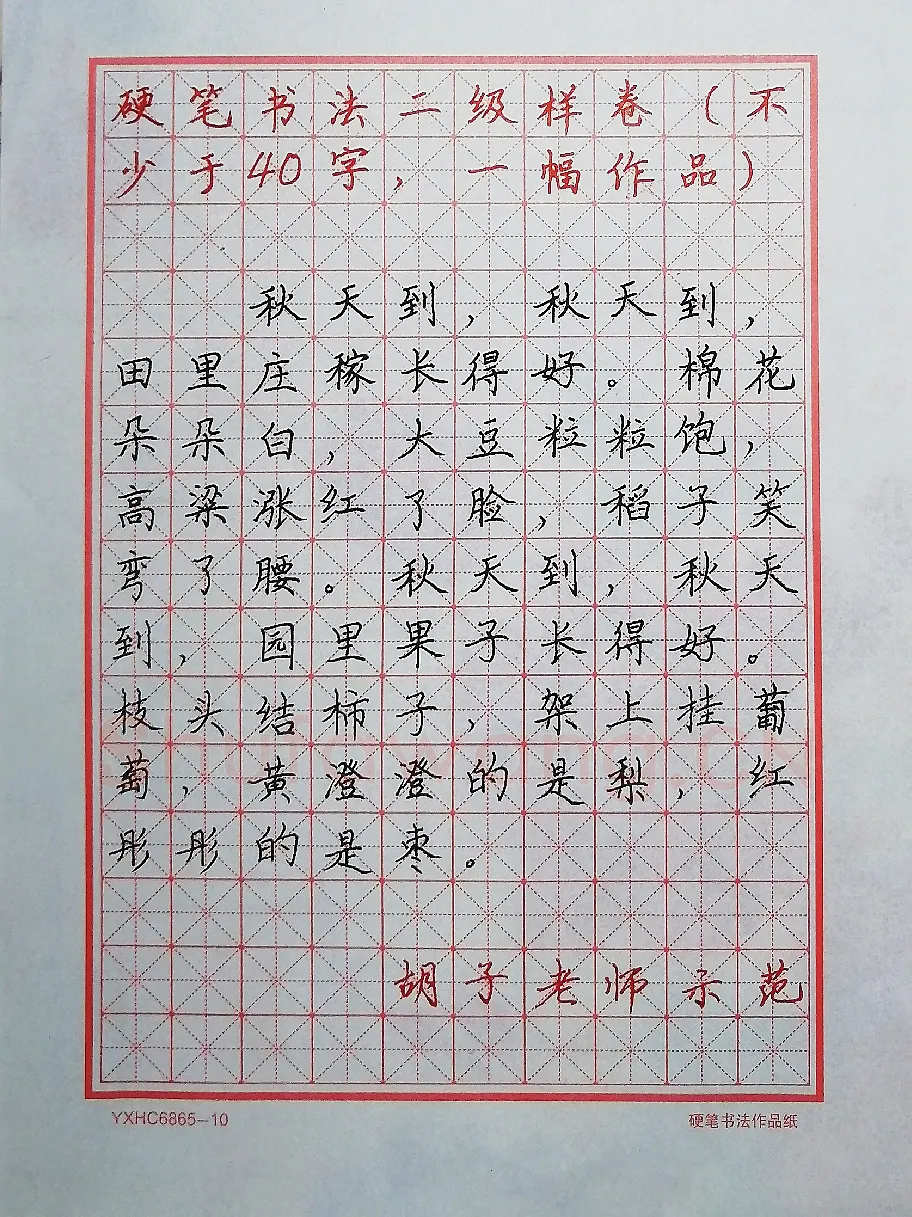 硬笔书法二级样卷(不
少于40字,一幅作品)
秋天到,秋天到,
田里庄稼长得好。棉花
朵朵白,大豆粒粒饱,
高粱涨红了脸,稻子笑
弯了腰。秋天到,秋天
到,园里果子长得好。
枝头结柿子,架上挂葡
萄,黄澄澄的是梨,红
彤彤的是枣。
胡子老师示范
YXHC6865-10 硬笔书法作品纸